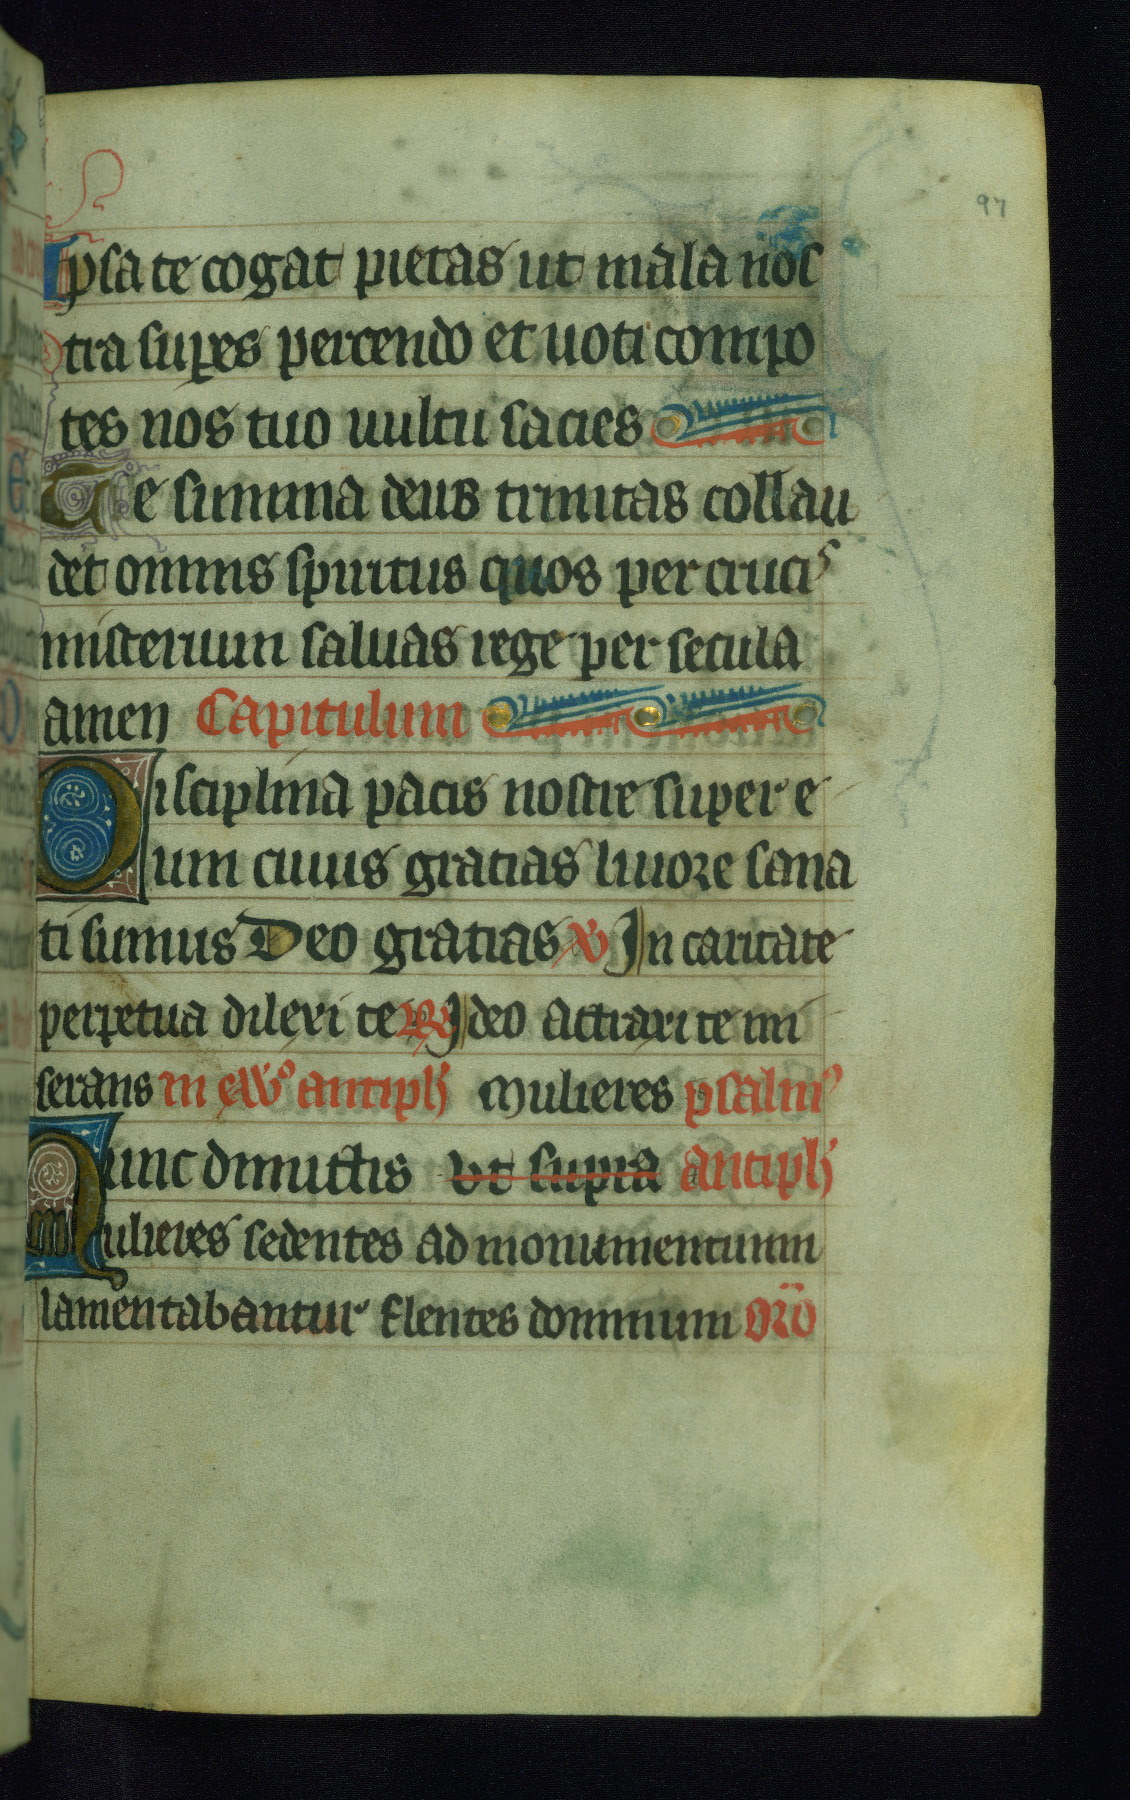 97
Ipsa te cogat pietas ut mala nos
tra supes percendo et uoti compo
tes nos tuo uultu sacies
Te summa deus trinitas collau
det omnis spiritus quos per cruci s
misterium saluas rege per secula
amen Capitulum
Disciplina pacis nostre super e
um cuius gratias liuore sana
ti sumus Deo gratias V In caritate
perpetua dilexi te R Ideo attraxi te mi
serans in eua⁹ antiph Mulieres psalm⁹
Nunc dimittis ut supra antiph
Mulieres sedentes ad monumentum
lamentabantur flentes dominum Oro